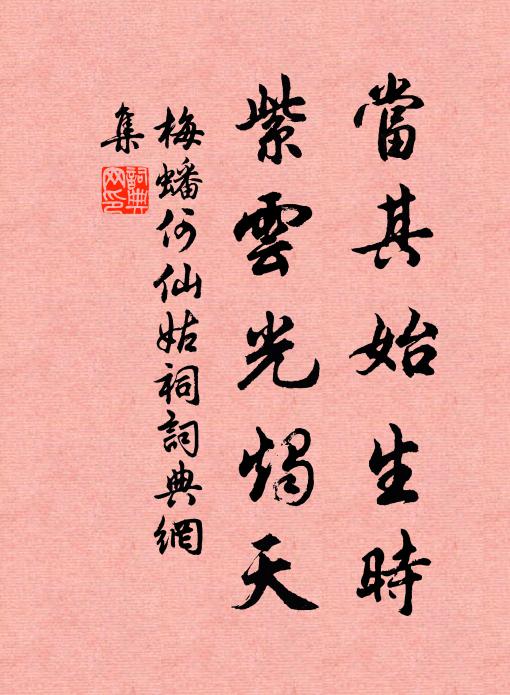 當其始生時
紫雲光燭天
梅蟠何仙姑祠詞典網
集
詞典
网印